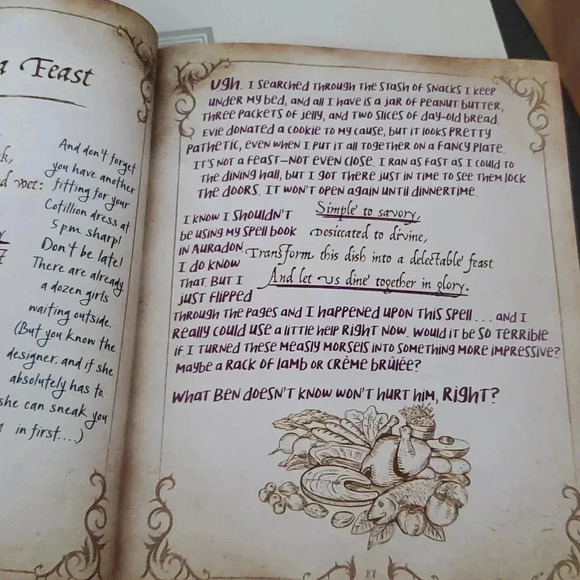 a Feast
And don't forget
you have another
fitting for your
Cotillion dress at
5 p.m. sharp!
Don't be late!
There are already
a dozen girls
waiting outside.
(But you know the
designer, and if she
absolutely has to,
she can sneak you
in first....)
UGH. I SEARCHED THROUGH THE STASH OF SNACKS I KEEP
UNDER MY BED, AND ALL I HAVE IS A JAR OF PEANUT BUTTER,
THREE PACKETS OF JELLY, AND TWO SLICES OF DAY-OLD BREAD.
EVIE DONATED A COOKIE TO MY CAUSE, BUT IT LOOKS PRETTY
PATHETIC, EVEN WHEN I PUT IT ALL TOGETHER ON A FANCY PLATE.
IT'S NOT A FEAST—NOT EVEN CLOSE. I RAN AS FAST AS I COULD TO
THE DINING HALL, BUT I GOT THERE JUST IN TIME TO SEE THEM LOCK
THE DOORS. IT WON'T OPEN AGAIN UNTIL DINNERTIME.
I KNOW I SHOULDN'T
BE USING MY SPELL BOOK
IN AURADON.
I DO KNOW
THAT. BUT I
JUST FLIPPED
Simple to savory,
Desiccated to divine,
Transform this dish into a delectable feast
And let us dine together in glory.
THROUGH THE PAGES AND I HAPPENED UPON THIS SPELL . . . AND I
REALLY COULD USE A LITTLE HELP RIGHT NOW. WOULD IT BE SO TERRIBLE
IF I TURNED THESE MEASLY MORSELS INTO SOMETHING MORE IMPRESSIVE?
MAYBE A RACK OF LAMB OR CRÈME BRÛLÉE?
WHAT BEN DOESN'T KNOW WON'T HURT HIM, RIGHT?